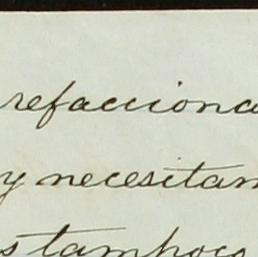 refacciona
y necesitan
s tampoco